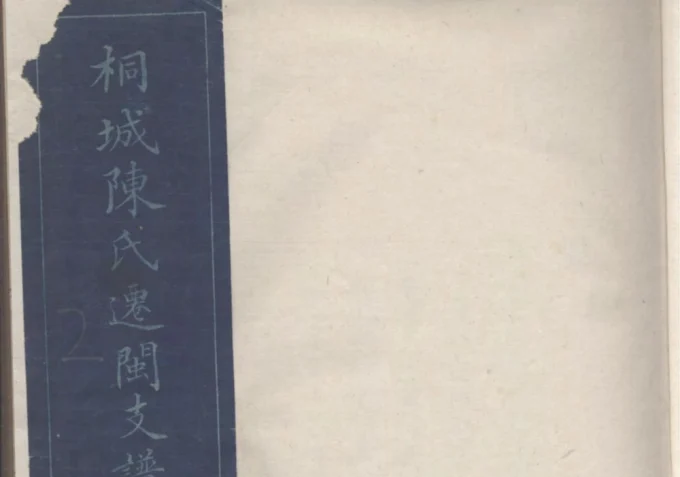 桐城陳氏遷閩支譜
2